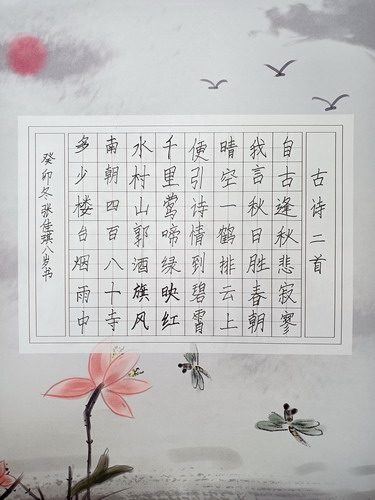 古诗二首
自古逢秋悲寂寥
我言秋日胜春朝
晴空一鹤排云上
便引诗情到碧霄
千里莺啼绿映红
水村山郭酒旗风
南朝四百八十寺
多少楼台烟雨中
癸卯冬张佳琪八岁书